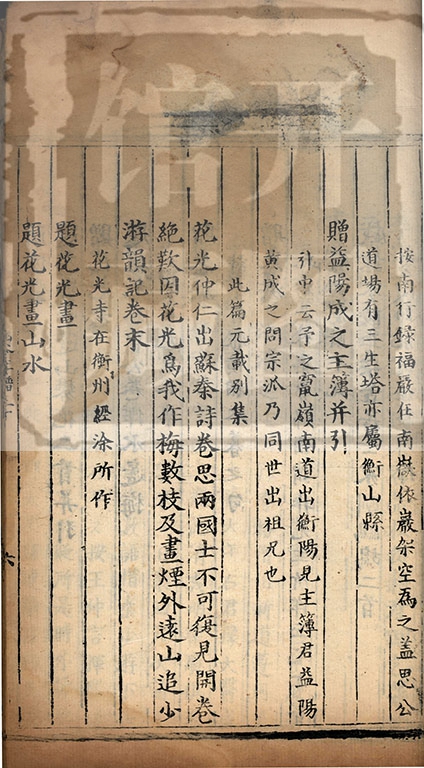 按南行錄福嚴在南嶽依巖架空爲之蓋思公
道場有三生塔亦屬衡山縣
贈益陽成之主簿并引
引中云予之竄嶺南道出衡陽見主簿君益陽
黃成之問宗派乃同世出祖兄也
此篇元載別集
花光仲仁出蘇秦詩卷思兩國士不可復見開卷
絶歎因花光爲我作梅數枝及畫煙外遠山追少
游韻記卷末
花光寺在衡州經涂所作
題花光畫
題花光畫山水
六